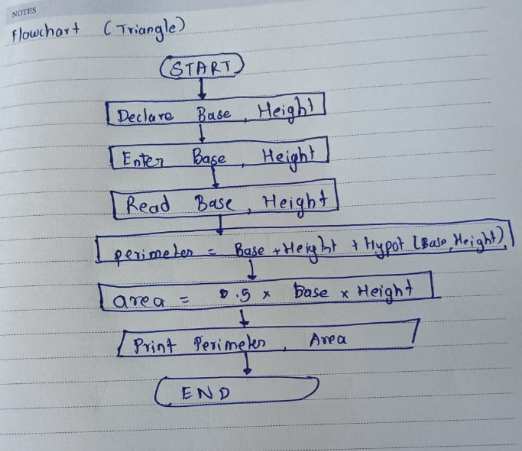 NOTES
Flowchart (Triangle)
START
Declare Base, Height
Enter Base, Height
Read Base, Height
perimeter = Base + Height + Hypot (Base, Height)
area = 0.5 x base x Height
Print Perimeter, Area
END